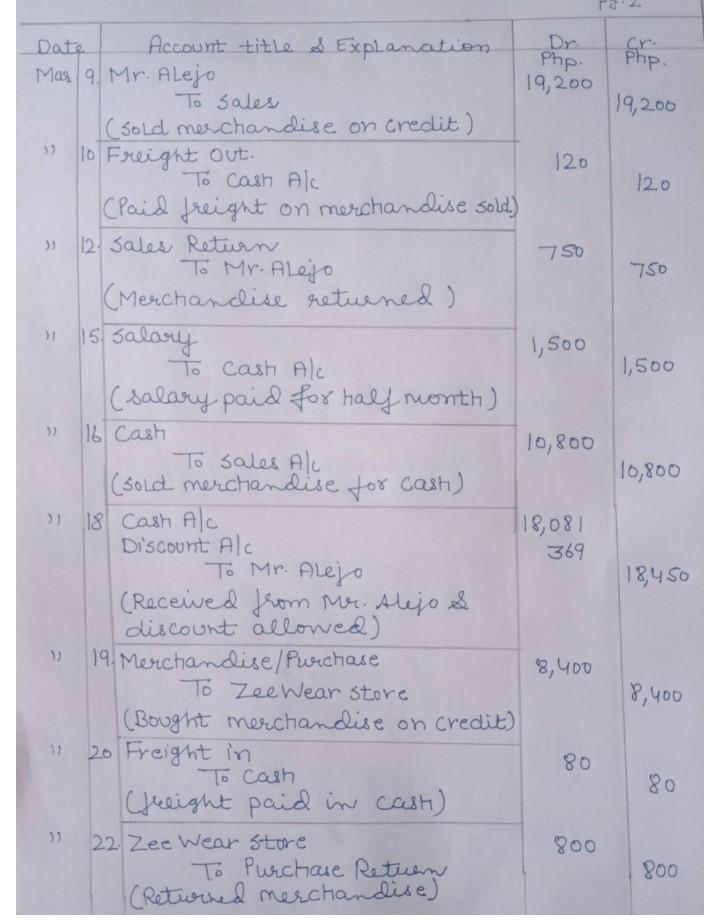 Pg. 2
Date Account title & Explanation Dr. Php. Cr. Php.
Mar 9. Mr. Alejo 19,200
To Sales 19,200
(Sold merchandise on credit)
" 10 Freight Out. 120
To Cash A/c 120
(Paid freight on merchandise sold)
" 12. Sales Return 750
To Mr. Alejo 750
(Merchandise returned)
" 15. Salary 1,500
To Cash A/c 1,500
(Salary paid for half month)
" 16 Cash 10,800
To Sales A/c 10,800
(Sold merchandise for cash)
" 18 Cash A/c 18,081
Discount A/c 369
To Mr. Alejo 18,450
(Received from Mr. Alejo &
discount allowed)
" 19. Merchandise/Purchase 8,400
To Zee Wear Store 8,400
(Bought merchandise on credit)
" 20 Freight in 80
To Cash 80
(freight paid in cash)
" 22. Zee Wear Store 800
To Purchase Return 800
(Returned merchandise)